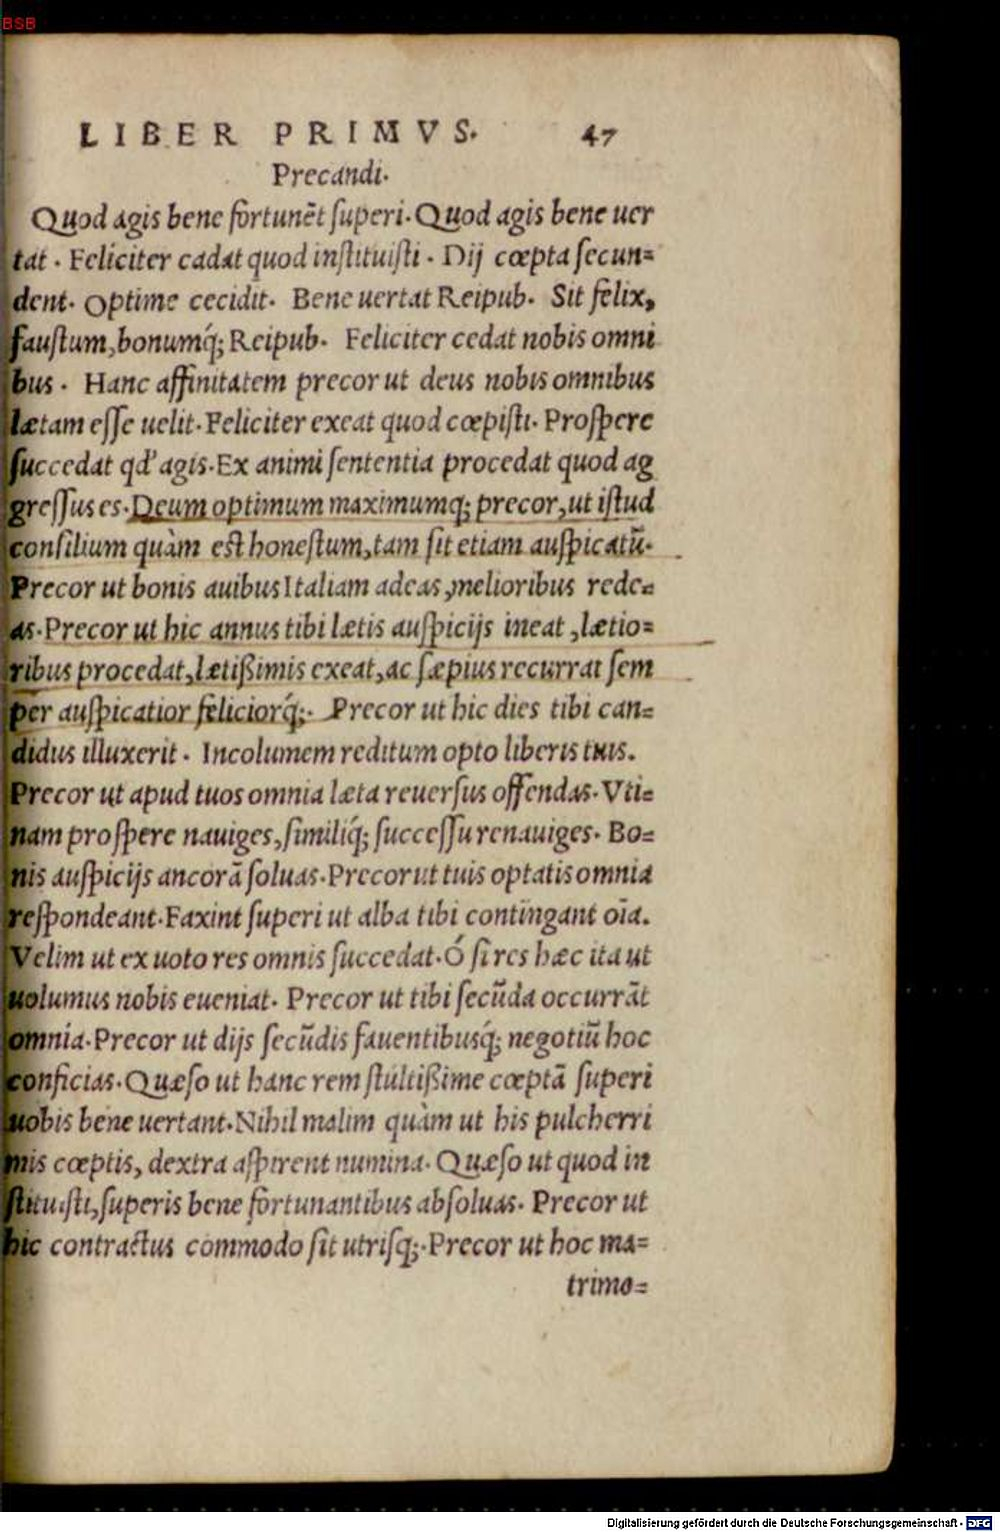 BSB
LIBER PRIMVS. 47
Precandi.
Quod agis bene fortunẽt ſuperi. Quod agis bene uer
tat. Feliciter cadat quod inſtituiſti. Dij cœpta ſecun=
dent. Optime cecidit. Bene uertat Reipub. Sit felix,
fauſtum, bonumq́; Reipub. Feliciter cedat nobis omni
bus. Hanc affinitatem precor ut deus nobis omnibus
lætam eſſe uelit. Feliciter exeat quod cœpiſti. Proſpere
ſuccedat qd' agis. Ex animi ſententia procedat quod ag
greſſus es. Deum optimum maximumq; precor, ut iſtud
conſilium quàm eſt honeſtum, tam ſit etiam auſpicatũ.
Precor ut bonis auibus Italiam adeas, melioribus rede=
as. Precor ut hic annus tibi lætis auſpicijs ineat, lætio=
ribus procedat, lætißimis exeat, ac ſæpius recurrat ſem
per auſpicatior feliciorq́;. Precor ut hic dies tibi can=
didus illuxerit. Incolumem reditum opto liberis tuis.
Precor ut apud tuos omnia læta reuerſus offendas. Vti=
nam proſpere nauiges, ſimiliq́; ſucceſſu renauiges. Bo=
nis auſpicijs ancorã ſoluas. Precor ut tuis optatis omnia
reſpondeant. Faxint ſuperi ut alba tibi contingant oĩa.
Velim ut ex uoto res omnis ſuccedat. Ó ſi res hæc ita ut
uolumus nobis eueniat. Precor ut tibi ſecũda occurrãt
omnia. Precor ut dijs ſecũdis fauentibusq́; negotiũ hoc
conficias. Quæſo ut hanc rem ſtultißime cœptã ſuperi
uobis bene uertant. Nihil malim quàm ut his pulcherri
mis cœptis, dextra aſpirent numina. Quæſo ut quod in
ſtituiſti, ſuperis bene fortunantibus abſoluas. Precor ut
hic contractus commodo ſit utriſq;. Precor ut hoc ma=
trimo=
Digitalisierung gefördert durch die Deutsche Forschungsgemeinschaft - DFG